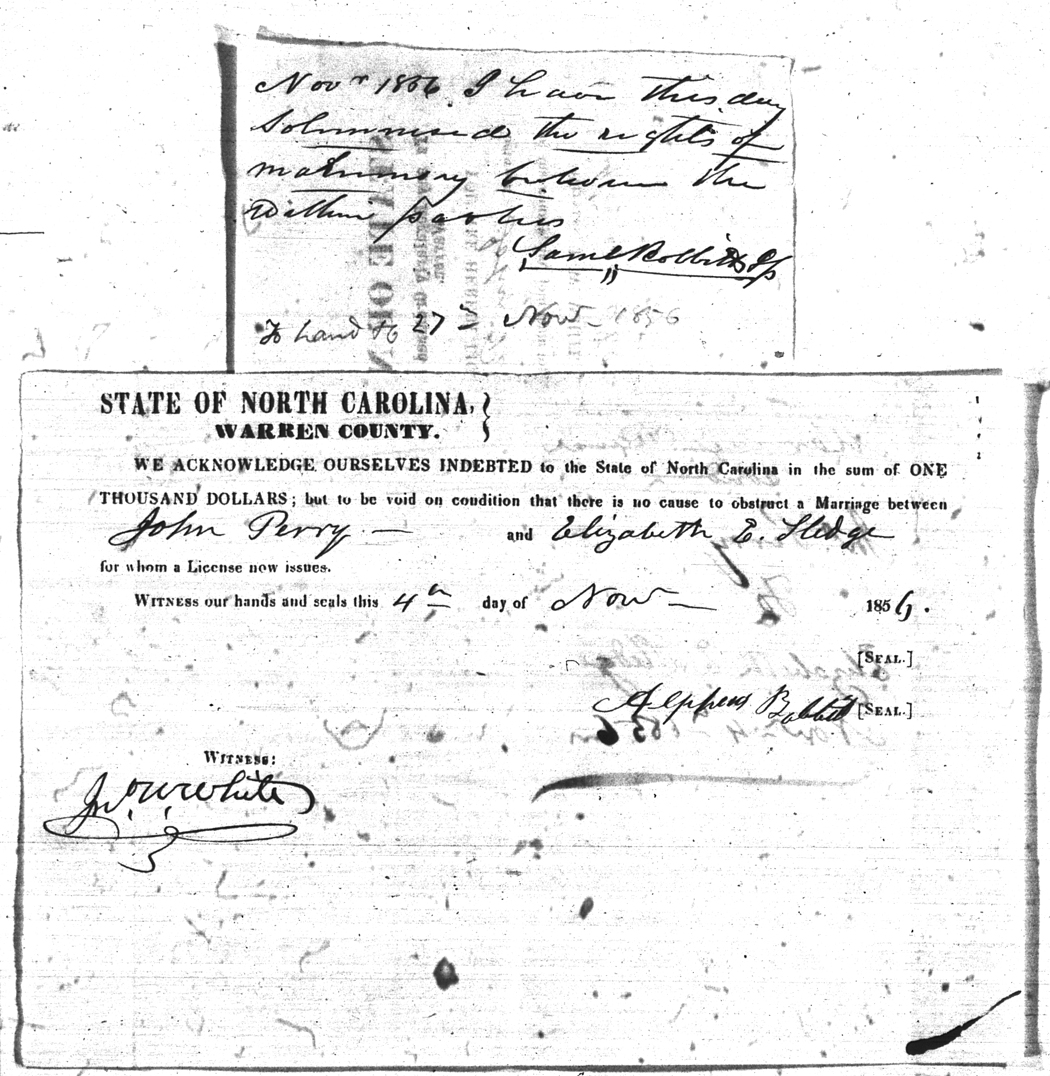 Novr 1856. I have this day
Solumnised the rights of
matrimony between the
within parties
Saml Bobbitt Jp
To hand to 27 Novr 1856
STATE OF NORTH CAROLINA,
WARREN COUNTY.
WE ACKNOWLEDGE OURSELVES INDEBTED to the State of North Carolina in the sum of ONE
THOUSAND DOLLARS; but to be void on condition that there is no cause to obstruct a Marriage between
John Perry and Elizabeth E. Sledge
for whom a License now issues.
WITNESS our hands and seals this 4th day of Nov 1856.
[SEAL.]
Bobbitt [SEAL.]
WITNESS:
Jno W White